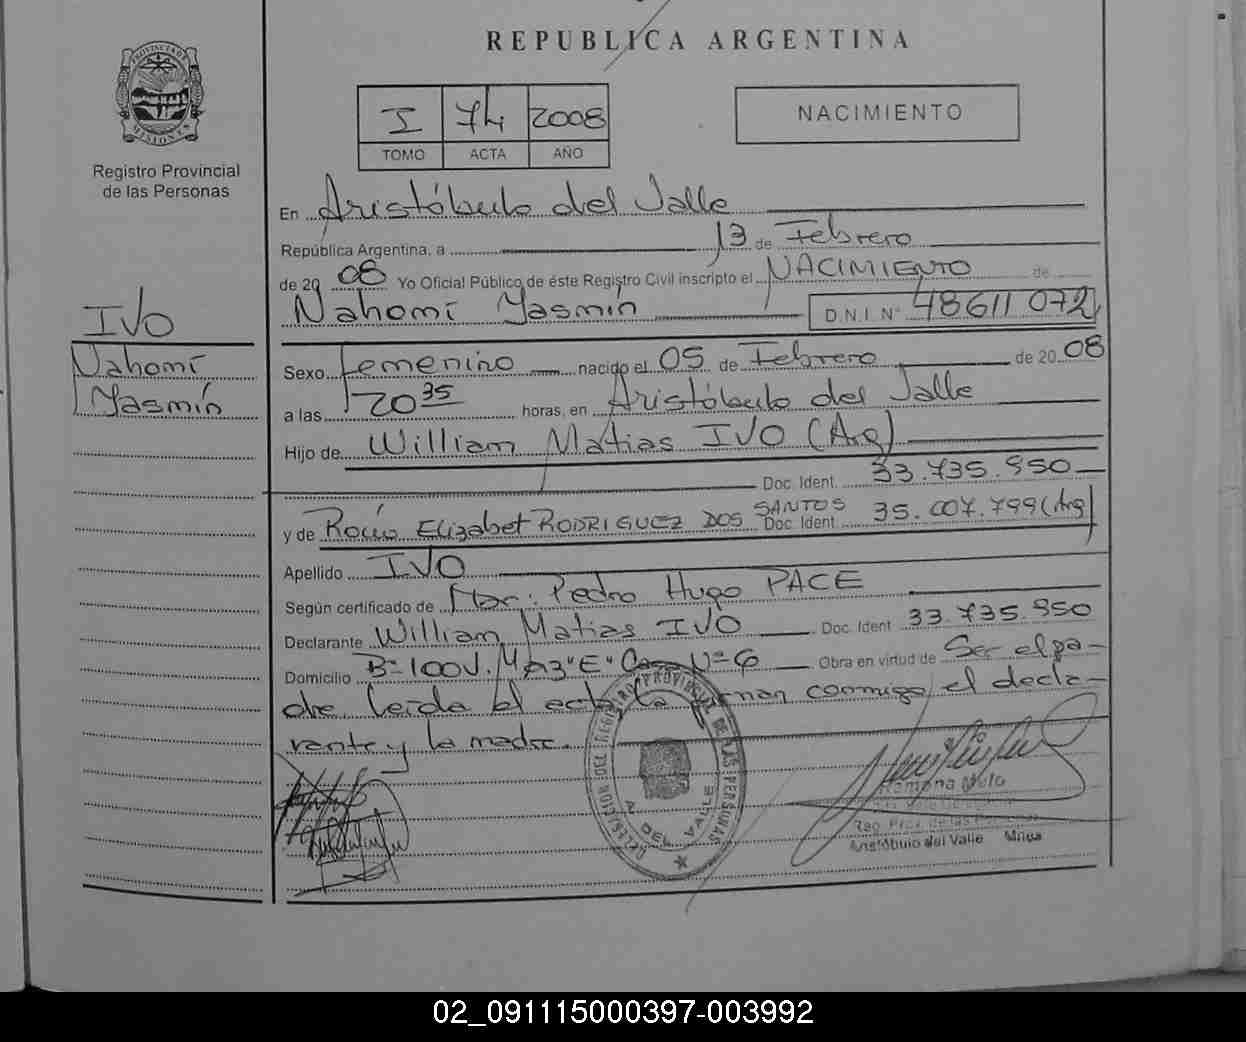 REPUBLICA ARGENTINA
PROVINCIA DE
MISIONES
Registro Provincial
de las Personas
I 74 2008
TOMO ACTA AÑO
NACIMIENTO
En Aristóbulo del Valle
República Argentina, a 13 de Febrero
de 2008 Yo Oficial Público de éste Registro Civil inscripto el NACIMIENTO de
Nahomí Yasmín D.N.I. Nº 48611072
IVO
Nahomí
Yasmín
Sexo femenino nacido el 05 de Febrero de 2008
a las 20 35 horas, en Aristóbulo del Valle
Hijo de William Matias IVO (Arg)
Doc. Ident. 33.735.950
y de Rocío Elizabet RODRIGUEZ DOS SANTOS Doc. Ident. 35.007.799 (Arg)
Apellido IVO
Según certificado de Pedro Hugo PACE
Declarante William Matias IVO Doc. Ident 33.735.950
Domicilio Bº 100V. Mz 3 "E" Casa Nº 6 Obra en virtud de Ser el pa-
dre leída el acta la firman conmigo el decla-
rante y la madre.
DELEGACION DEL REGISTRO PROVINCIAL DE LAS PERSONAS
A. DEL VALLE
Ramona Melo
Reg. Prov. de las Personas
Aristóbulo del Valle Mnes
02_091115000397-003992